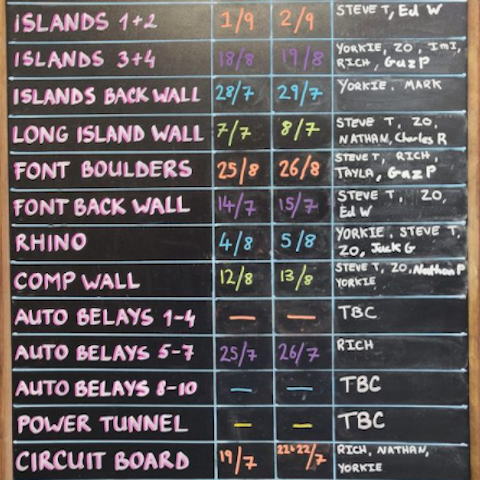 ISLANDS 1+2 1/9 2/9 STEVE T, Ed W
ISLANDS 3+4 18/8 19/8 YORKIE, ZO, ImI,
RICH, Guz P
ISLANDS BACK WALL 28/7 29/7 YORKIE, MARK
LONG ISLAND WALL 7/7 8/7 STEVE T, ZO,
NATHAN, Charles R
FONT BOULDERS 25/8 26/8 STEVE T, RICH,
TAYLA, Guz P
FONT BACK WALL 14/7 15/7 STEVE T, ZO,
Ed W
RHINO 4/8 5/8 YORKIE, STEVE T,
ZO, Jack G
COMP WALL 12/8 13/8 STEVE T, ZO, Nathan P
YORKIE
AUTO BELAYS 1-4 — — TBC
AUTO BELAYS 5-7 25/7 26/7 RICH
AUTO BELAYS 8-10 — — TBC
POWER TUNNEL — — TBC
CIRCUIT BOARD 19/7 /7 RICH, NATHAN,
YORKIE